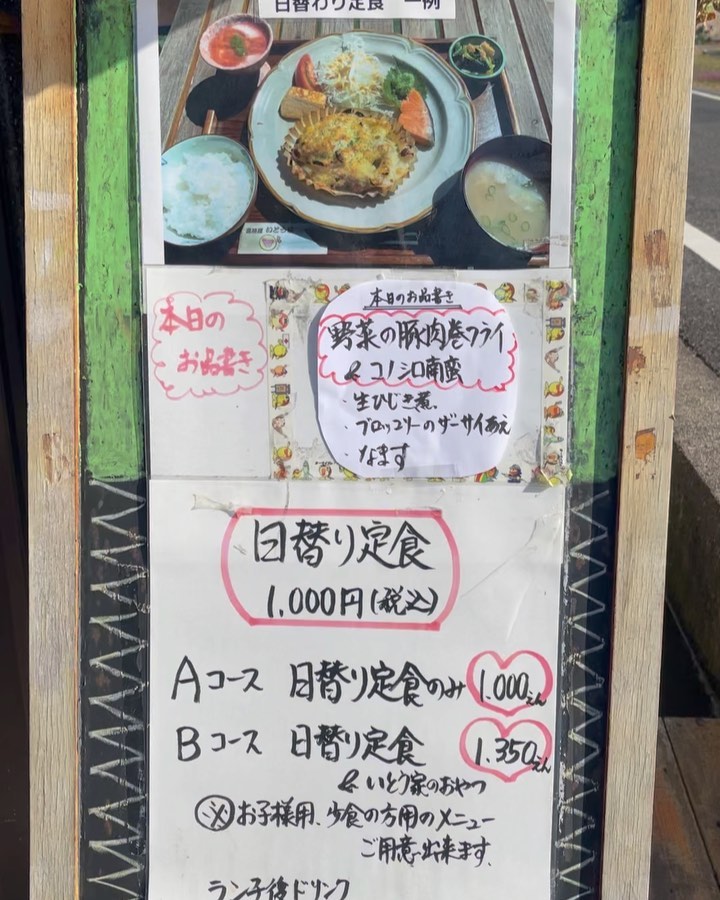 日替わり定食 一例
本日の
お品書き
本日のお品書き
野菜の豚肉巻フライ
& コノシロ南蛮
・生ひじき煮
・ブロッコリーのザーサイあえ
・なます
日替り定食
1,000円(税込)
Aコース 日替り定食のみ 1.000えん
Bコース 日替り定食 1.350えん
& いとう家のおやつ
※お子様用、少食の方用のメニュー
ご用意出来ます。
ランチ後ドリンク